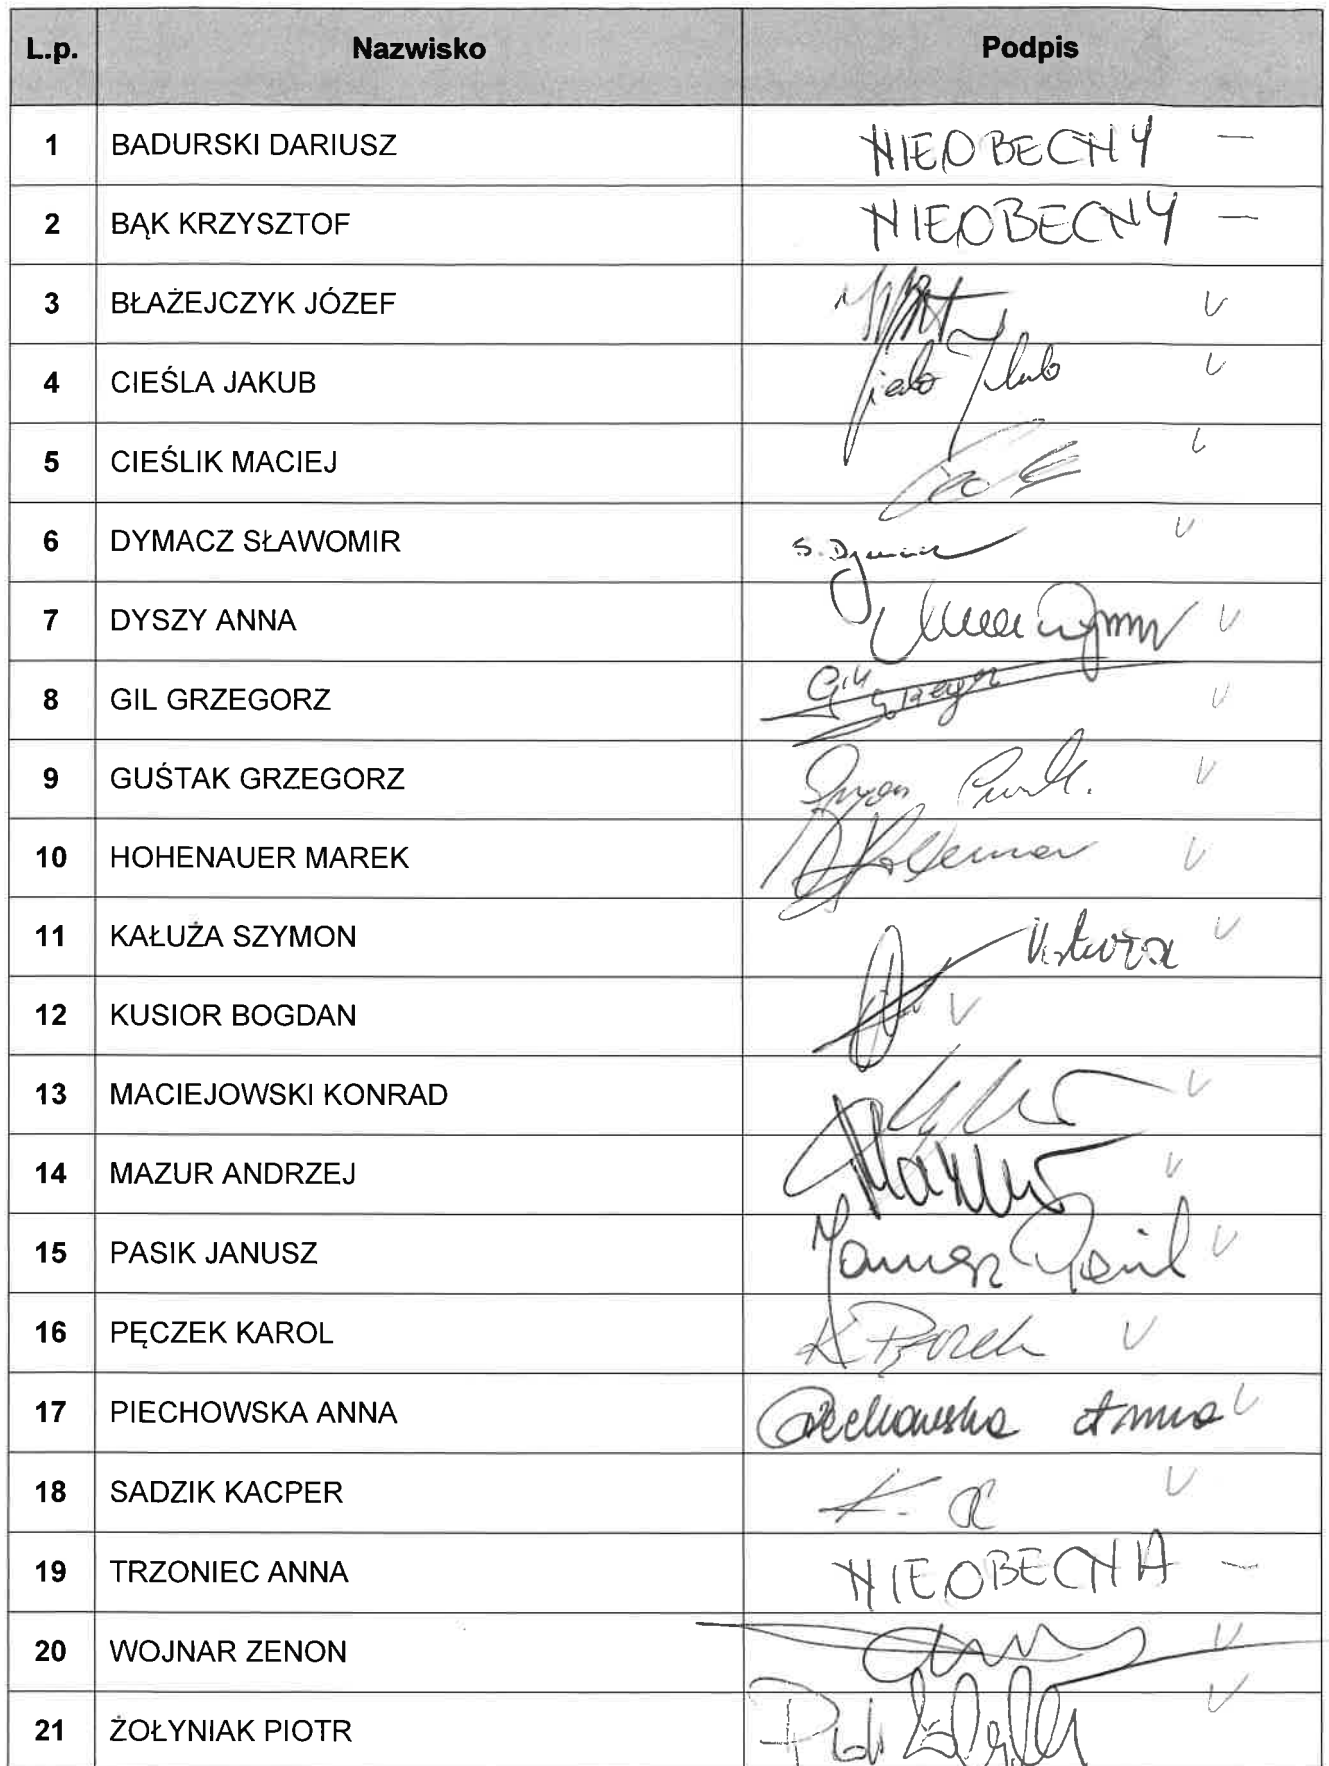 L.p. Nazwisko Podpis
1 BADURSKI DARIUSZ NIEOBECNY —
2 BĄK KRZYSZTOF NIEOBECNY —
3 BŁAŻEJCZYK JÓZEF V
4 CIEŚLA JAKUB V
5 CIEŚLIK MACIEJ V
6 DYMACZ SŁAWOMIR S. Dymacz V
7 DYSZY ANNA V
8 GIL GRZEGORZ Gil Grzegorz V
9 GUŚTAK GRZEGORZ V
10 HOHENAUER MAREK V
11 KAŁUŻA SZYMON Kałuża V
12 KUSIOR BOGDAN V
13 MACIEJOWSKI KONRAD V
14 MAZUR ANDRZEJ Mazur V
15 PASIK JANUSZ Janusz Pasik V
16 PĘCZEK KAROL K. Pęczek V
17 PIECHOWSKA ANNA Piechowska Anna V
18 SADZIK KACPER V
19 TRZONIEC ANNA NIEOBECNA —
20 WOJNAR ZENON V
21 ŻOŁYNIAK PIOTR V